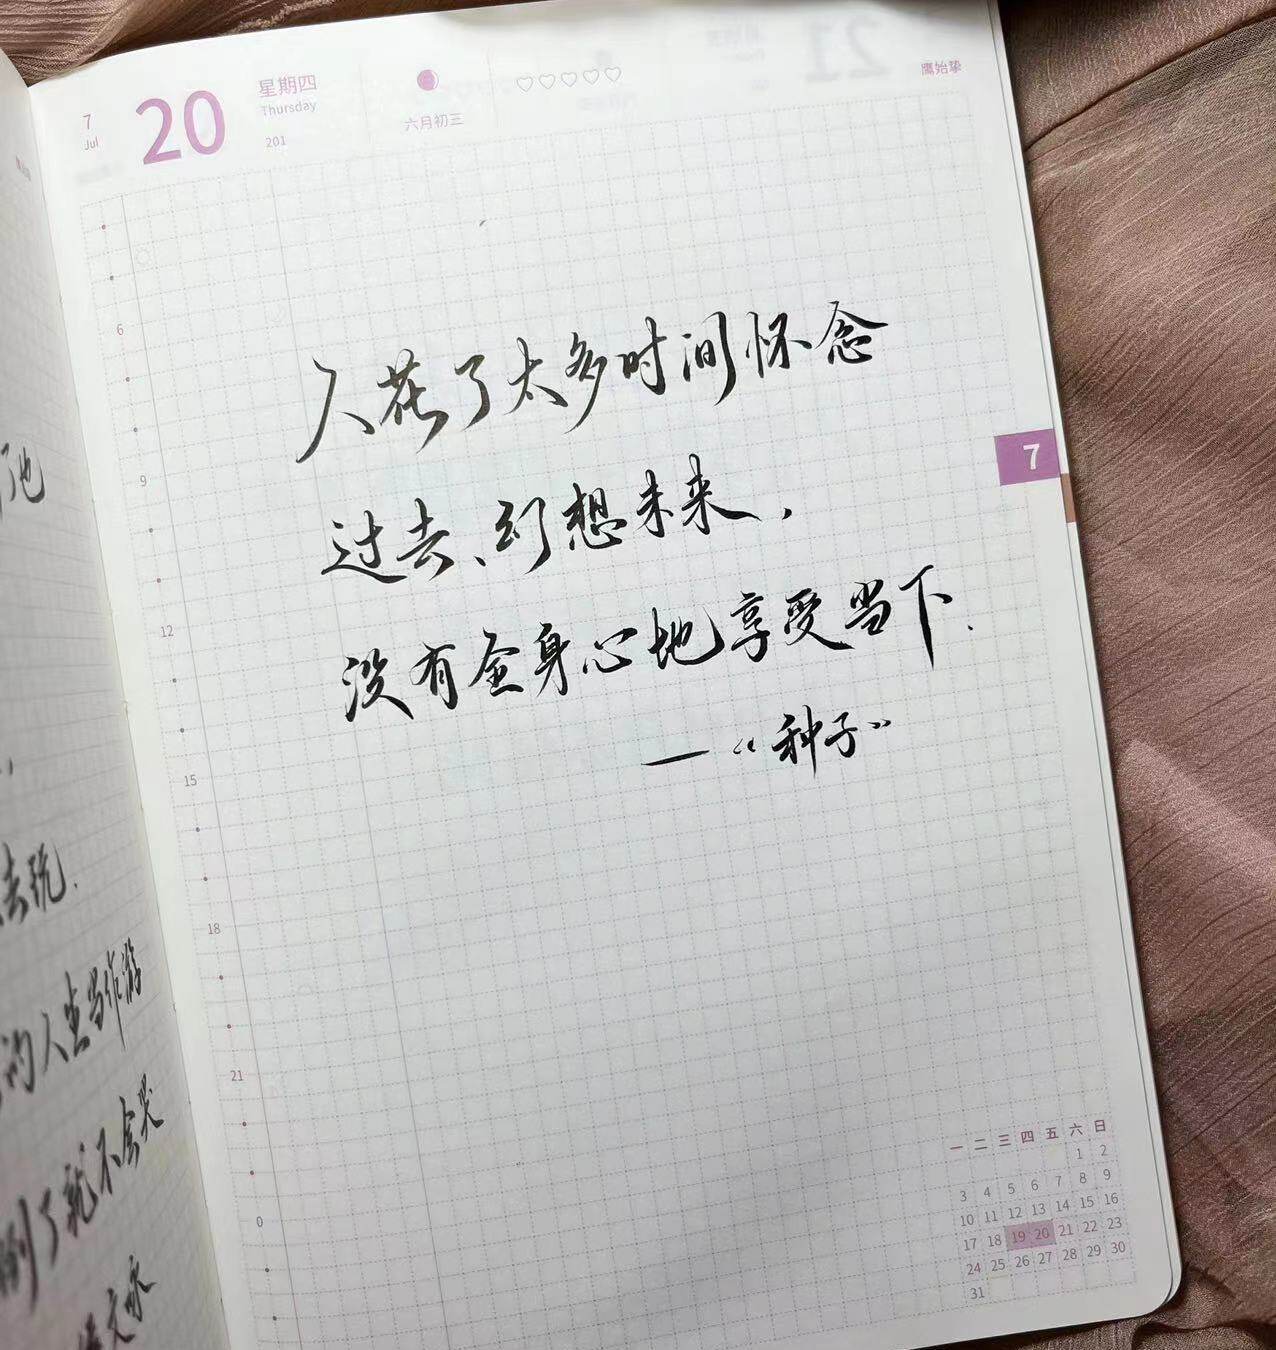 7
Jul
20
星期四
Thursday
201
六月初三
鷹始挚
人花了太多时间怀念
过去、幻想未来,
没有全身心地享受当下.
—“种子”
7
6
9
12
15
18
21
0
了他
去玩.
的人生当作游
倒了就不会哭
一 二 三 四 五 六 日
1 2
3 4 5 6 7 8 9
10 11 12 13 14 15 16
17 18 19 20 21 22 23
24 25 26 27 28 29 30
31